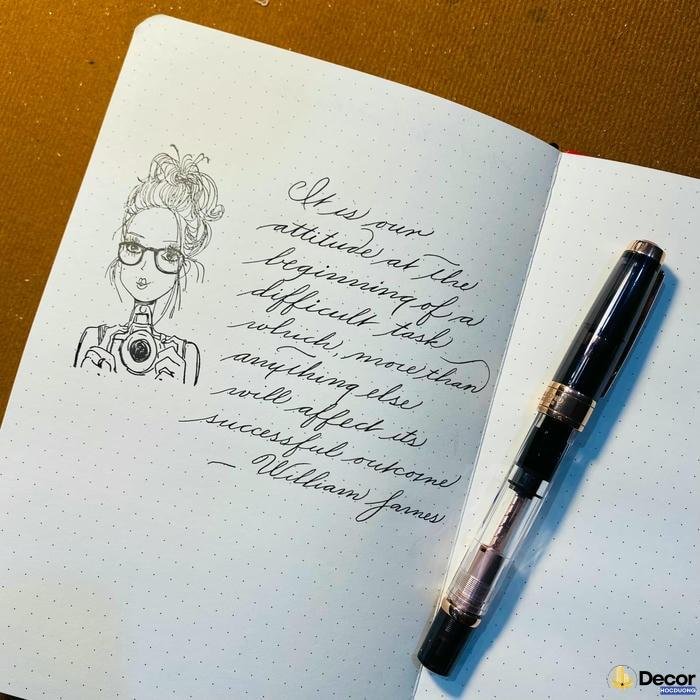 It is our
attitude at the
beginning of a
difficult task
which, more than
anything else
will affect its
successful outcome
— William James
Decor
HOCDUONG